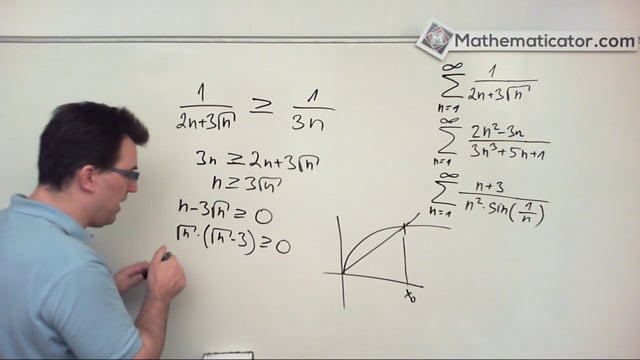 Mathematicator.com
1/(2n+3√n) ≥ 1/(3n)
3n ≥ 2n+3√n
n ≥ 3√n
n-3√n ≥ 0
√n·(√n-3) ≥ 0
x₀
∞ ∑ n=1 1/(2n+3√n)
∞ ∑ n=1 (2n²-3n)/(3n³+5n+1)
∞ ∑ n=1 (n+3)/(n²·sin(1/n))